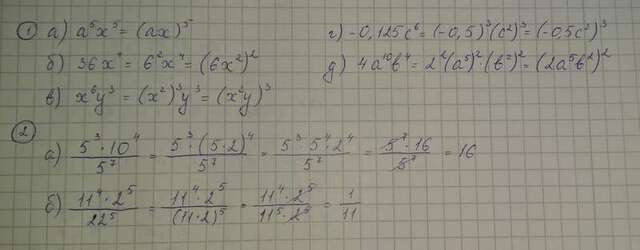 ① а) a⁵x⁵ = (ax)⁵
б) 36x⁴ = 6²x⁴ = (6x²)²
в) x⁶y³ = (x²)³y³ = (x²y)³
г) -0,125c⁶ = (-0,5)³(c²)³ = (-0,5c²)³
д) 4a¹⁰b⁴ = 2²(a⁵)²·(b²)² = (2a⁵b²)²
② а) 5³·10⁴/5⁷ = 5³·(5·2)⁴/5⁷ = 5³·5⁴·2⁴/5⁷ = 5⁷·16/5⁷ = 16
б) 11⁴·2⁵/22⁵ = 11⁴·2⁵/(11·2)⁵ = 11⁴·2⁵/11⁵·2⁵ = 1/11